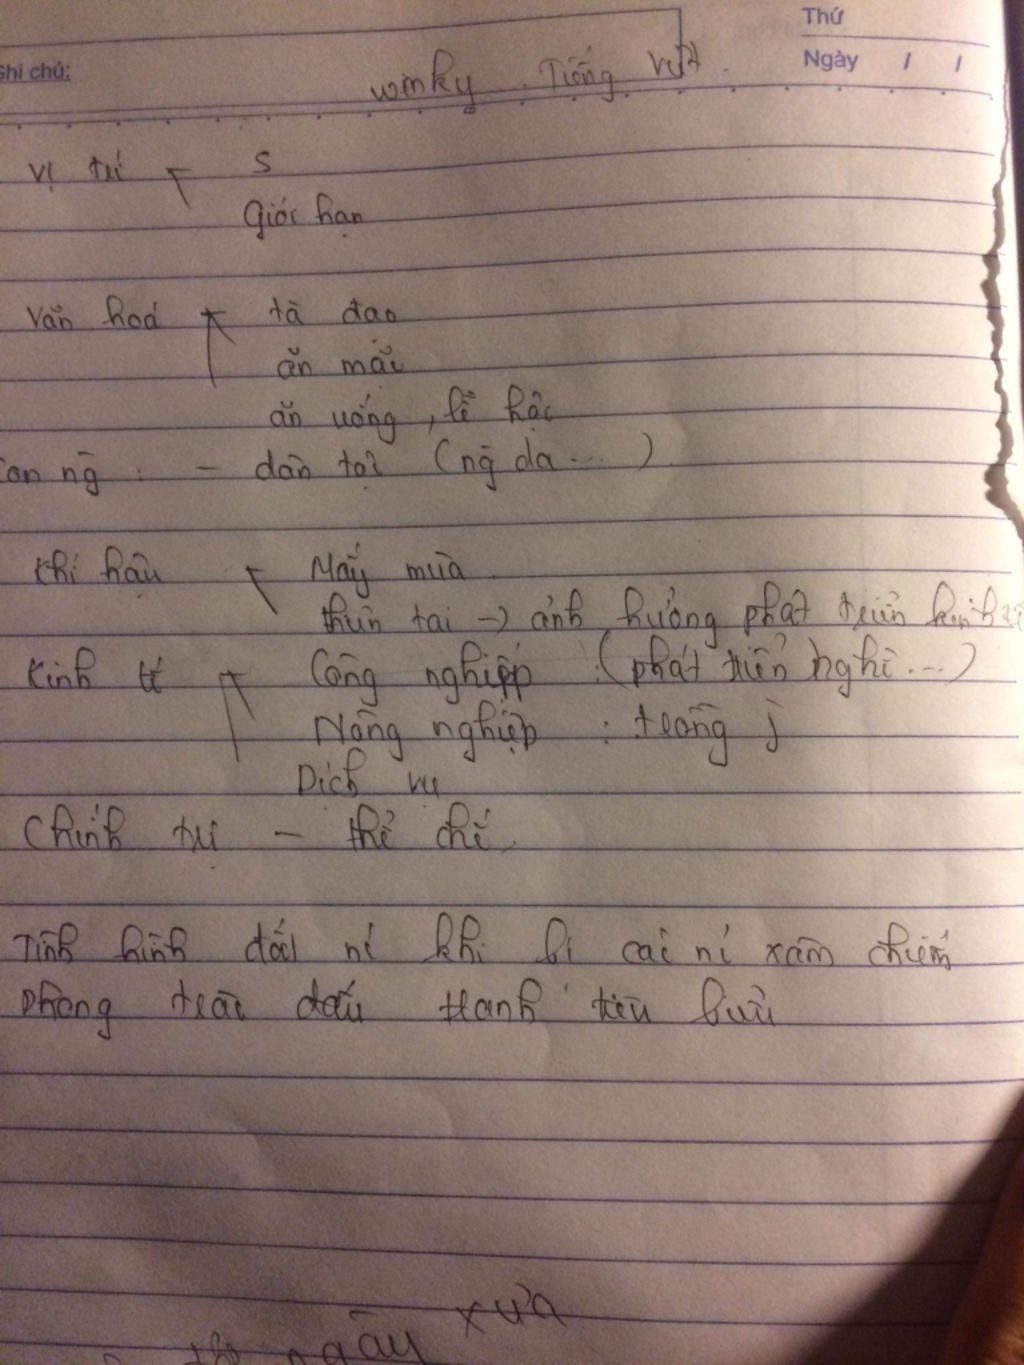 Thứ
Ghi chú:
Ngày / /
winky. Tiếng việt.
Vị trí S
Giới hạn
Văn hoá tà đạo
ăn mặc
ăn uống, lễ hội
Con ng : - dân tộc (ng da ...)
Khí hậu Mấy mùa
thiên tai -> ảnh hưởng phát triển kinh tế
Kinh tế Công nghiệp : (phát triển nghề ...)
Nông nghiệp : trồng j
Dịch vụ
Chính trị - thể chế
Tình hình đất nc khi bị các nc xâm chiếm
phong trào đấu tranh tiêu biểu
ngày xưa